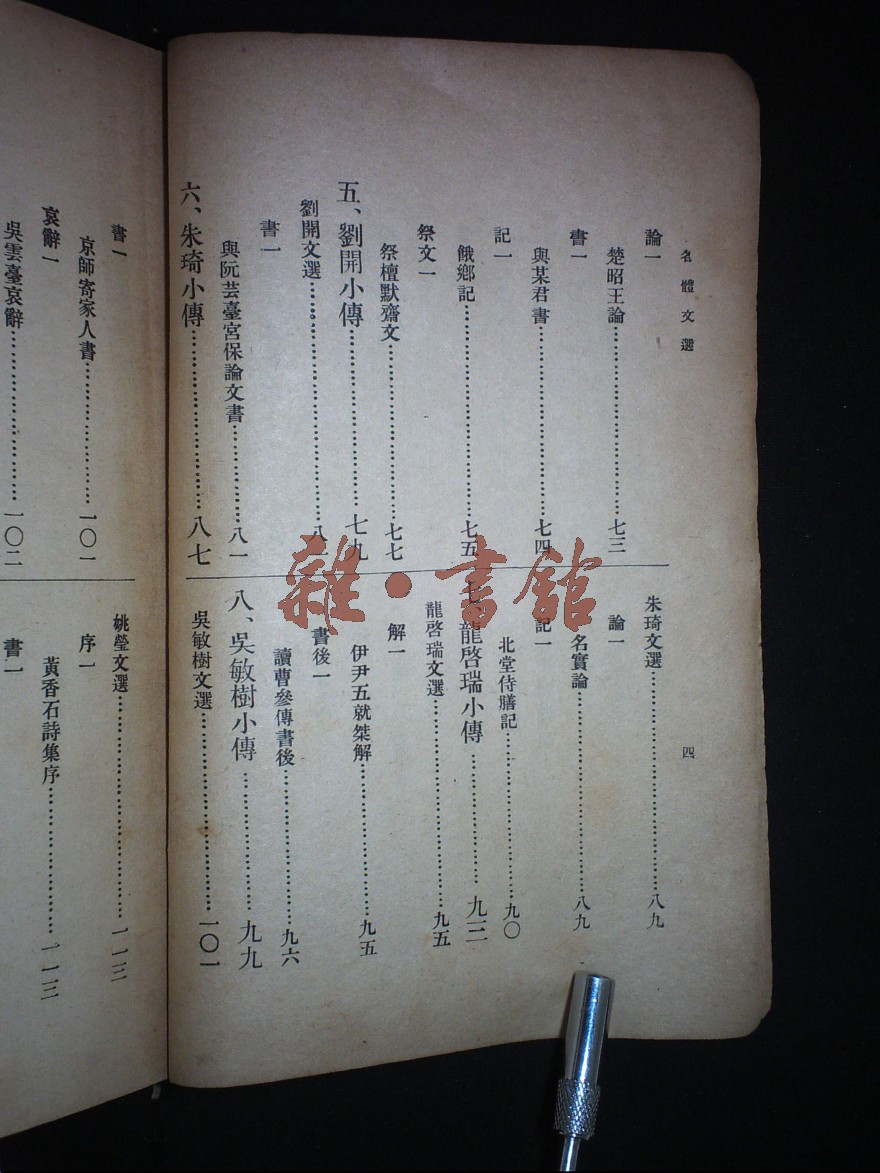 各體文選
四
論一
楚昭王論……七三
書一
與某君書……七四
記一
餓鄉記……七五
祭文一
祭檀默齋文……七七
五、劉開小傳……七九
劉開文選……八
書一
與阮芸臺宮保論文書……八一
六、朱琦小傳……八七
朱琦文選……八九
論一
名實論……八九
記一
北堂侍膳記……九〇
七、龍啓瑞小傳……九三
龍啓瑞文選……九五
解一
伊尹五就桀解……九五
書後一
讀曹參傳書後……九六
八、吳敏樹小傳……九九
吳敏樹文選……一〇一
書一
京師寄家人書……一〇一
哀辭一
吳雲臺哀辭……一〇二
姚瑩文選……一一三
序一
黃香石詩集序……一一三
書一
雜·書舘